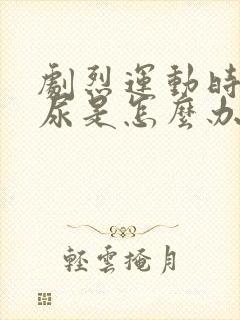 劇烈運動時
尿是怎麼办
輕雲掩月